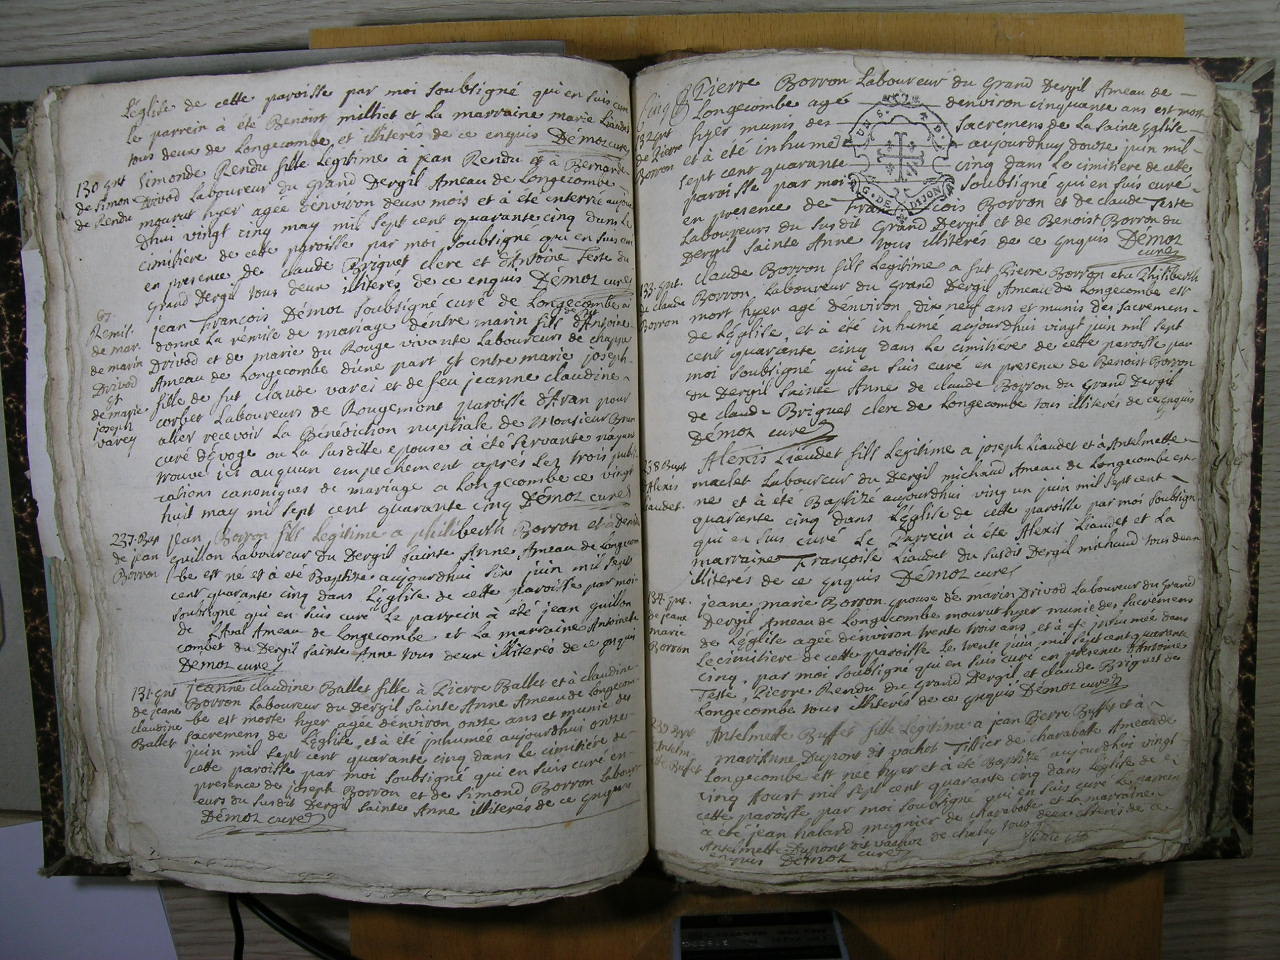 L'église de cette paroisse par moi soubsigné qui en suis curé
le parrein à été Benoist milliet et La marraine marie Liaudet
tous deux de Longecombe, et illiterés de ce enquis Démoz curé
130 Ent
de Simon
de Rendu
Simonde Rendu fille Legitime à jean Rendu et à Bernarde
Drivod Laboureur du Grand Dergil Ameau de Longecombe
mourut hyer agée dénviron deux mois et à été interré aujour
dhui vingt cinq may mil sept cent quarante cinq dans Le
cimitière de cette paroisse par moi soubsigné qui en suis curé
en presence de claude Briguet clerc et d'Antoine Teste du
Grand Dergil tous deux illiterés de ce enquis Démoz curé
67
Remis.
de mar.
de marin
Drivod
et
de marie
joseph
varey
jean François Démoz soubsigné curé de Longecombe à
donne La rémise de mariage déntre marin fils d'Antoine
Drivod et de marie du Rouge vivante Laboureurs de
Ameau de Longecombe d'une part et entre marie joseph
fille de fut claude varei et de feu jeanne claudine
corbet Laboureurs de Rougemont paroisse d'Aran pour
aller recevoir La Bénédiction nuptiale de Monsieur
curé d'évoge ou La susdite epouse à été servante nayant
trouvé ici auquun empechement aprés Lez trois publi
cations canoniques de mariage a Longecombe ce vingt
huit may mil sept cent quarante cinq Démoz curé
237 Bap
de jean
Borron
jean Borron fils Legitime a philiberth Borron et à Denise
Guillon Laboureur du Dergil Sainte Anne Ameau de Longecom
be est né et à été Baptizé aujourdhui six juin mil sept
cent quarante cinq dans L'église de cette paroisse par moi
soubsigné qui en suis curé Le parrein à été jean Guillon
de L'Aval Ameau de Longecombe et La marraine Antoinette
combet du Dergil Sainte Anne tous deux illiterés de ce enquis
Démoz curé
131 Ent
de jeane
claudine
Ballet
jeanne claudine Ballet fille à Pierre Ballet et à claudine
Borron Laboureur du Dergil Sainte Anne Ameau de Longecom
be est morte hyer agée dénviron onze ans et munie des
sacremens de L'église, et à été inhumée aujourdhui onze
juin mil sept cent quarante cinq dans Le cimitière de
cette paroisse par moi soubsigné qui en suis curé en
presence de joseph Borron et de Simond Borron Labou
reurs du susdit Dergil Sainte Anne illiterés de ce enquis
Démoz curé
132 Ent
de Pierre
Borron
Pierre Borron Laboureur du Grand Dergil Ameau de
Longecombe agé denviron cinquante ans est mort
hyer munis des Sacremens de La Sainte Eglise
et à été inhumé aujourdhuy douze juin mil
sept cent quarante cinq dans le cimitière de cette
paroisse par moi soubsigné qui en suis curé
en presence de François Borron et de claude Teste
Laboureurs du susdit Grand Dergil et de Benoist Borron du
Dergil Sainte Anne tous illiterés de ce enquis Démoz
curé
G. DE DIJON
133 Ent.
de claude
Borron
claude Borron fils Legitime a fut Pierre Borron et a Philiberth
Borron Laboureur du Grand Dergil Ameau de Longecombe est
mort hyer agé dénviron dix neuf ans et munis des sacremens
de L'église, et à été inhumé aujourdhui vingt juin mil sept
cent quarante cinq dans Le cimitière de cette paroisse par
moi soubsigné qui en suis curé en presence de Benoist Borron
du Dergil Sainte Anne de claude Borron du Grand Dergil
de claude Briguet clerc de Longecombe tous illiterés de ce enquis
Démoz curé
238 Bap
Alexis
Liaudet
Alexis Liaudet fils Legitime a joseph Liaudet et à Antelmette
maclet Laboureur du Dergil michaud Ameau de Longecombe est
né et à été Baptizé aujourdhui vingt un juin mil sept cent
quarante cinq dans L'église de cette paroisse par moi soubsigné
qui en suis curé Le Parrein à été Alexis Liaudet et La
marraine Françoise Liaudet du susdit Dergil michaud tous deux
illiterés de ce enquis Démoz curé
134 Ent.
de jeane
marie
Borron
jeane marie Borron epouse de marin Drivod Laboureur du Grand
Dergil Ameau de Longecombe mourut hyer munie des sacremens
de L'église agée dénviron trente trois ans, et à été inhumée dans
Le cimitière de cette paroisse Le trente juin mil sept cent quarante
cinq, par moi soubsigné qui en suis curé en présence Antoine
Teste, Pierre Rendu du Grand Dergil et claude Briguet de
Longecombe tous illiterés de ce enquis Démoz curé
239 Bap
Antelm
te Buffet
Antelmette Buffet fille Legitime à jean Pierre Buffet et à
marianne Dupont dit vachot Tillier de charabotte Ameau de
Longecombe est née hyer et à été Baptizé aujourdhui vingt
cinq Aoust mil sept cent quarante cinq dans L'église de
cette paroisse par moi soubsigné qui en suis curé Le parrein
a été jean halard mugnier de charabotte et La marraine
Antelmette Dupont dit vachot de chaley tous deux illiterés de ce
enquis Démoz curé